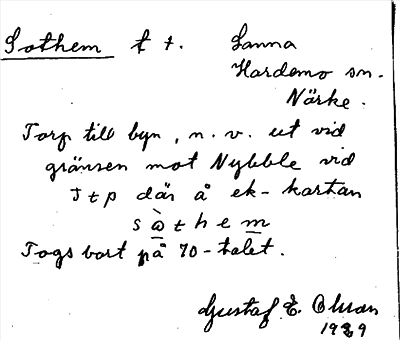 Sothem t t. Sanna
Hardemo sn.
Närke.
Torp till byn, n. v. ut vid
gränsen mot Nybble vid
Jtp där å ek-kartan
s ò t h e m
Togs bort på 70-talet.
Gustaf E. Olson
1929